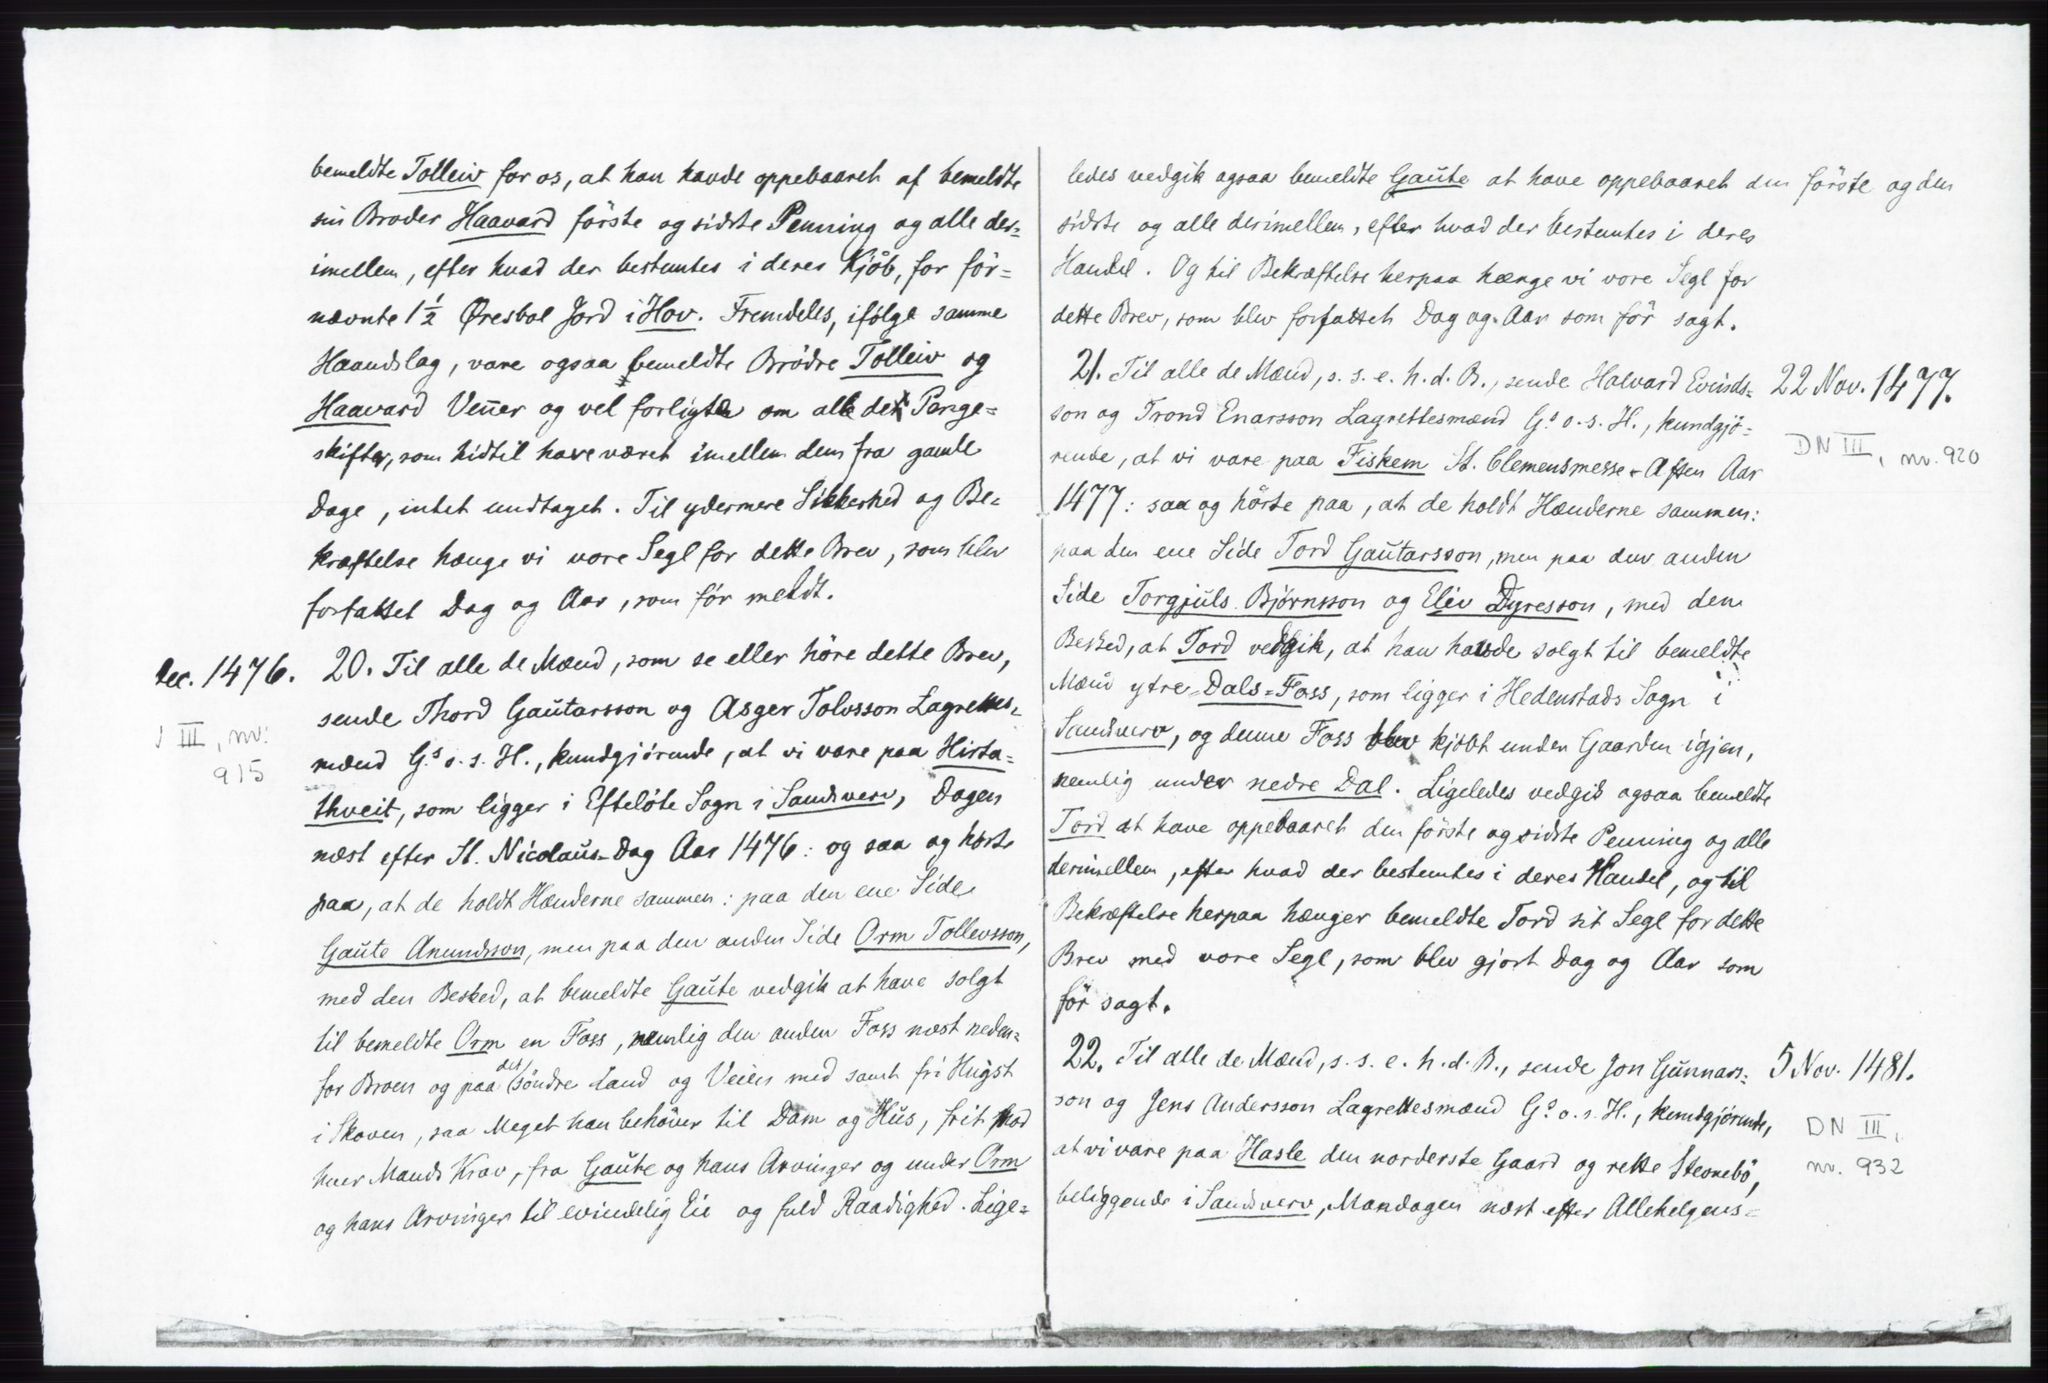 bemeldte Tolleiv for os, at han havde oppebaaret af bemeldte
sin Broder Haavard første og sidste Penning og alle der=
imellem, efter hvad der bestemtes i deres Kjöb, for för=
nævnte 1 1/2 Øresbol Jord i Hov. Fremdeles, ifölge samme
Haandslag, vare ogsaa bemeldte Brödre Tolleiv og
Haavard Venner og vel forligte om alle de Penge=
skifter, som hidtil have været imellem dem fra gamle
Dage, intet undtaget. Til ydermere Sikkerhed og Be=
kræftelse hænge vi vore Segl for dette Brev, som blev
forfattet Dag og Aar, som för meldt.
Dec. 1476.
20. Til alle de Mænd, som se eller höre dette Brev,
sende Thord Gautarsson og Asger Tolvsson Lagrettes=
III, nr.
915
mænd G.s o. s. H., kundgjörende, at vi vare paa Hirsta=
thveit, som ligger i Eftelöte Sogn i Sandsverv, Dagen
næst efter St. Nicolaus-Dag Aar 1476: og saa og hörte
paa, at de holdt Hænderne sammen: paa den ene Side
Gaute Anundsson, men paa den anden Side Orm Tollevsson,
med den Besked, at bemeldte Gaute vedgik at have solgt
til bemeldte Orm en Foss, nemlig den anden Foss næst neden=
for Broen og paa det söndre Land og Veien med samt fri Hugst
i Skoven, saa Meget han behöver til Dam og Hus, frit mod
hver Mands Krav, fra Gaute og hans Arvinger og under Orm
og hans Arvinger til evindelig Eie og fuld Raadighed. Lige=
ledes vedgik ogsaa bemeldte Gaute at have oppebaaret den förste og den
sidste og alle derimellem, efter hvad der bestemtes i deres
Handel. Og til Bekræftelse herpaa hænge vi vore Segl for
dette Brev, som blev forfattet Dag og Aar som för sagt.
21. Til alle de Mænd, s. s. e. h. d. B., sende Halvard Evinds=
22 Nov. 1477.
son og Trond Enarsson Lagrettesmænd G.s o. s. H., kundgjö=
DN III, nr. 920
rende, at vi vare paa Fiskem St. Clemensmesse-Aften Aar
1477: saa og hörte paa, at de holdt Hænderne sammen:
paa den ene Side Tord Gautarsson, men paa den anden
Side Torgjuls Björnsson og Eliv Dyresson, med den
Besked, at Tord vedgik, at han havde solgt til bemeldte
Mænd ytre-Dals-Foss, som ligger i Hedenstads Sogn i
Sandsverv, og denne Foss blev kjöbt unden Gaarden igjen,
nemlig under nedre Dal. Ligeledes vedgik ogsaa bemeldte
Tord at have oppebaaret den förste og sidste Penning og alle
derimellem, efter hvad der bestemtes i deres Handel, og til
Bekræftelse herpaa hænger bemeldte Tord sit Segl for dette
Brev med vore Segl, som blev gjort Dag og Aar som
för sagt.
22. Til alle de Mænd, s. s. e. h. d. B., sende Jon Gunnars=
5 Nov. 1481.
son og Jens Andersson Lagrettesmænd G.s o. s. H., kundgjörende,
DN III,
nr. 932
at vi vare paa Hasle den norderste Gaard og rette Stevnebö,
beliggende i Sandsverv, Mandagen næst efter Allehelgens=